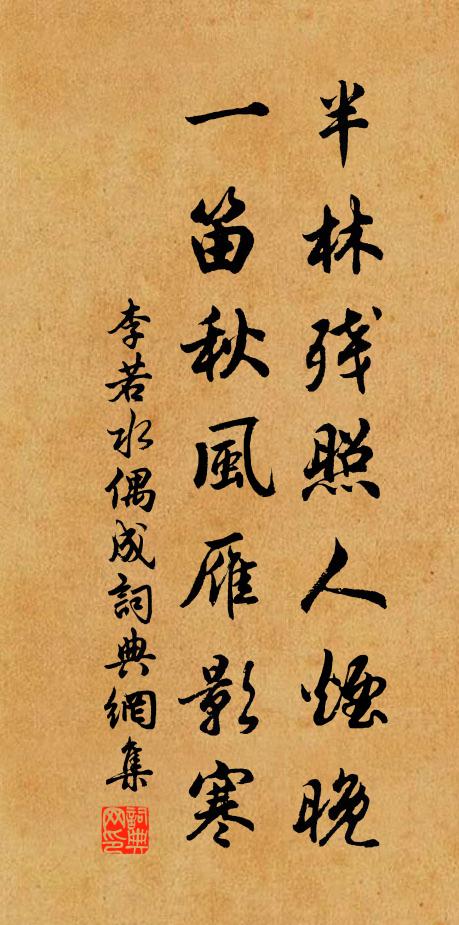 半林残照人煙晚
一笛秋風雁影寒
李若水偶成詞典網集
詞典
网印